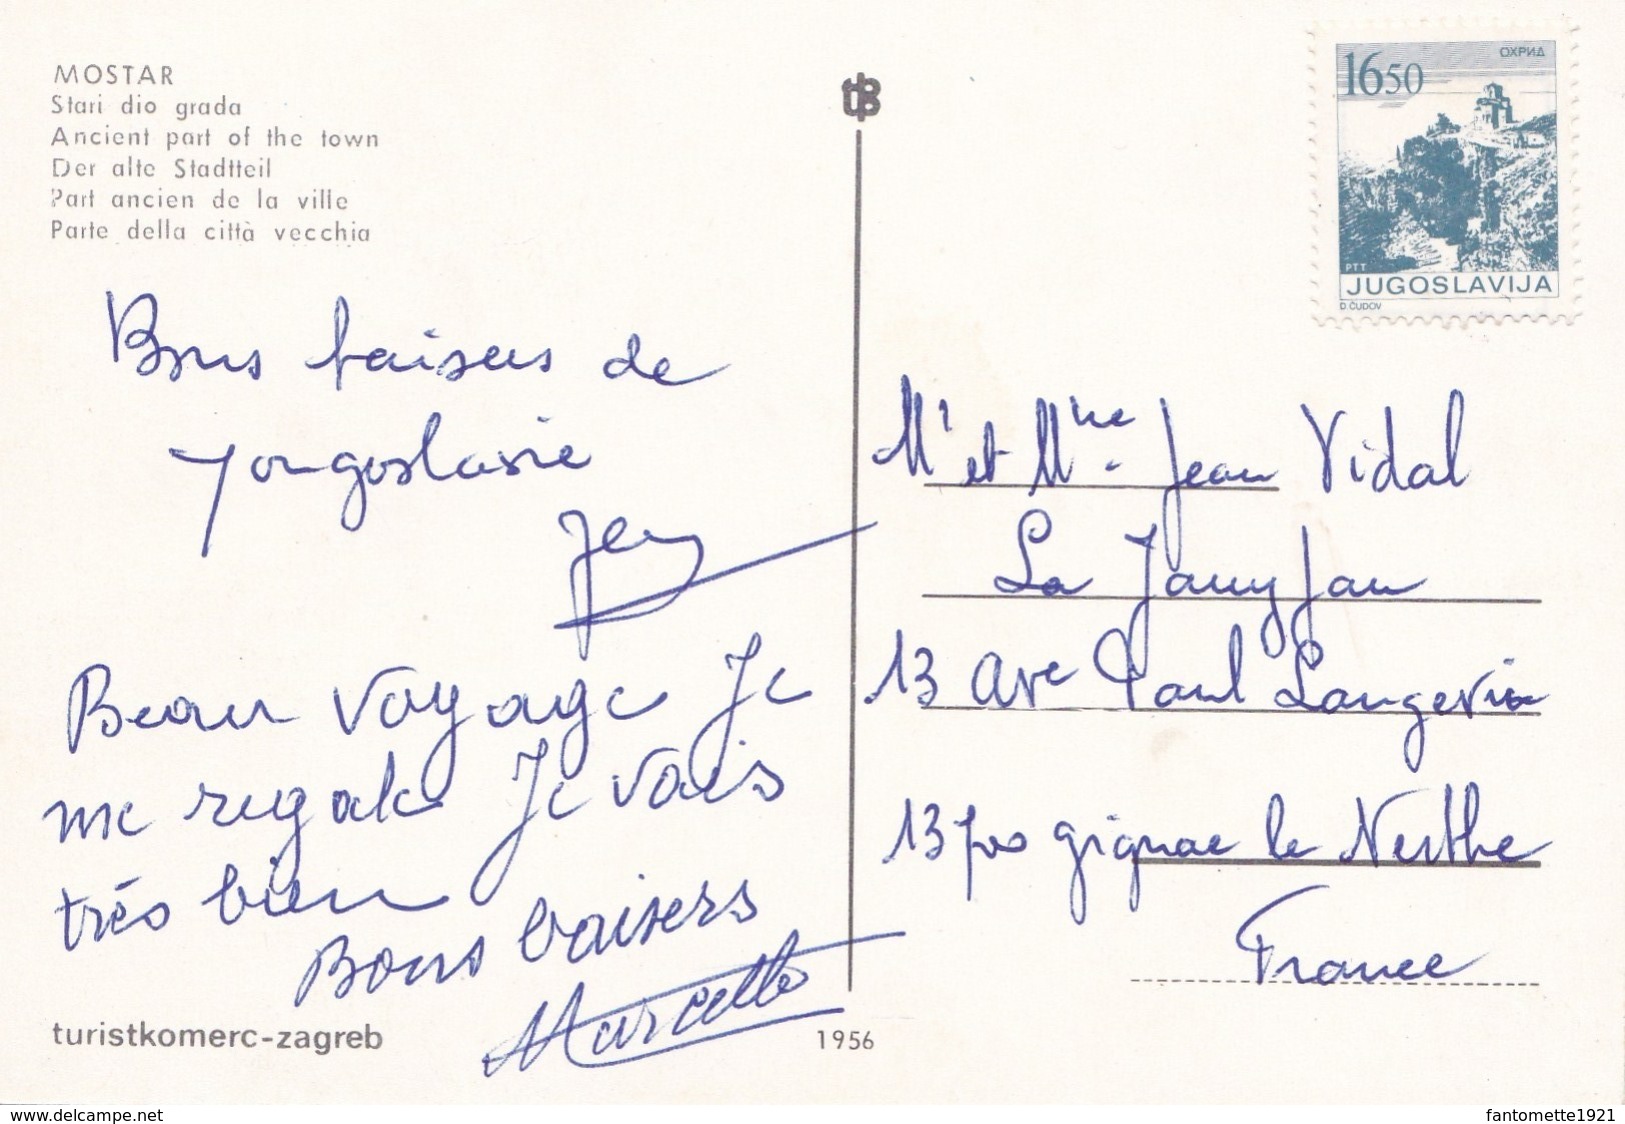 MOSTAR
Stari dio grada
Ancient part of the town
Der alte Stadtteil
Part ancien de la ville
Parte della città vecchia
Bons baisers de
Yougoslavie
Beau voyage Je
me regale Je vais
très bien
Bons baisers
Marcelle
turistkomerc-zagreb
1956
ОХРИД
1650
PTT
JUGOSLAVIJA
D. ČUDOV
Mr et Mme Jean Vidal
La
13 Ave Paul Langevin
13700 gignac la Nerthe
France
www.delcampe.net
fantomette1921